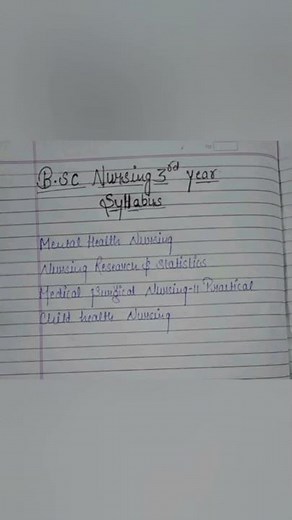 B.SC Nursing 3rd year
Syllabus
Mental Health Nursing
Nursing Research & Statistics
Medical Surgical Nursing-II Practical
Child health Nursing